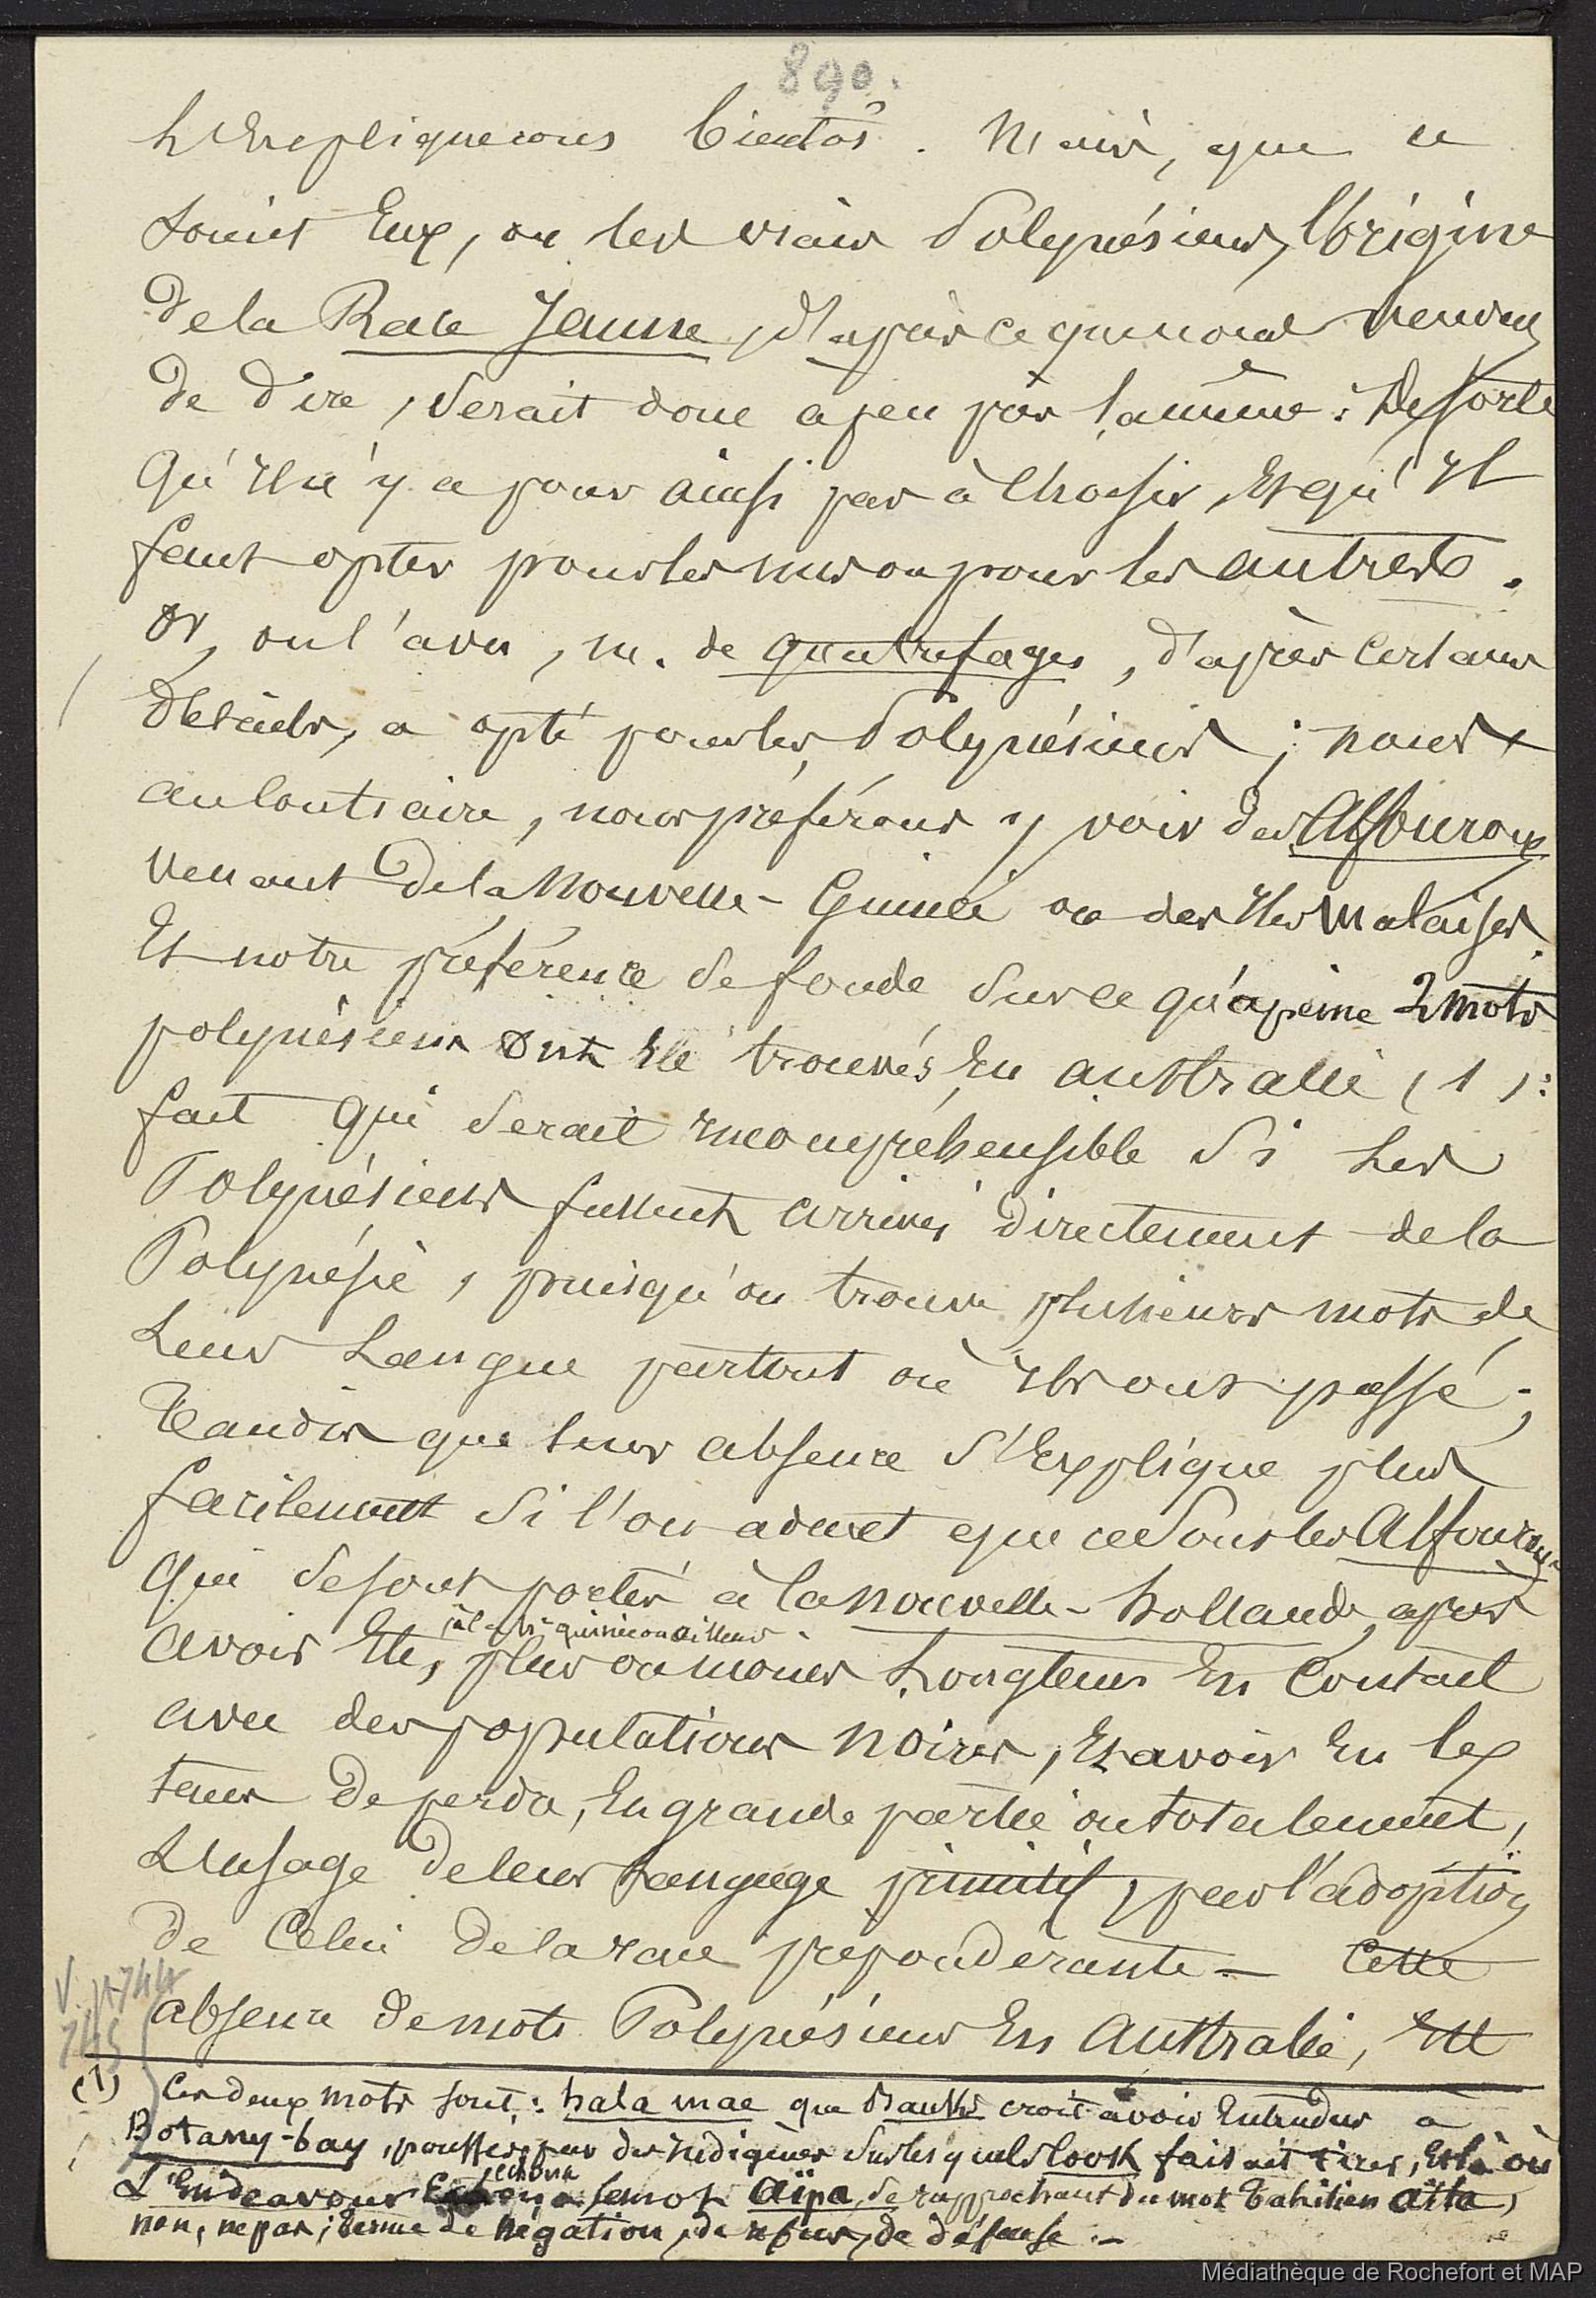 890.
L'Expliquerons bientôt. Mais, que ce
soient Eux, ou les vrais Polynésiens, l'origine
de la Race Jaune, d'après ce que nous venons
de dire, serait donc a peu près la même : de sorte
qu'Il n'y a pour ainsi pas à choisir, Et qu'Il
faut opter pour les uns ou pour les autres.
Or, on l'a vu, m. de quatrefages, d'après certains
détails, a opté pour les Polynésiens ; nous
au contraire, nous préférons y voir des Alfouroux
venant de la Nouvelle-Guinée ou des Iles Malaises.
Et notre préférence se fonde sur ce qu'a peine 2 mots
polynésiens ont Eté trouvés En australie (1) :
fait qui serait incompréhensible si les
Polynésiens fussent arrivés directement de la
Polynésie, puisqu'on trouve plusieurs mots de
Leur Langue partout où Ils ont passé ;
Tandis que leur absence s'Explique plus
facilement si l'on admet que ce sont les Alfouroux
qui se sont portés à la nouvelle-hollande, après
à la nlle guinée ou ailleurs
avoir Eté, plus ou moins Longtems En Contact
avec des populations noires, Et avoir Eu le
tems de perdre, En grande partie ou totalement,
L'Usage de leur Langage primitif, par l'adoption
de Celui de la race prépondérante — Cette
V. p 744
745
absence de mots Polynésiens En Australie, Est
(1) Ces deux mots sont : hala mae que Banks croit avoir Entendus a
Botany-bay, poussés par des Indigènes sur lesquels Cook faisait tirer, Et là où
L'Endeavour échoua le mot aïpa, se rapprochant du mot Tahitien aïta,
non, ne pas ; terme de négation, de refus, de défense. —
Médiathèque de Rochefort et MAP